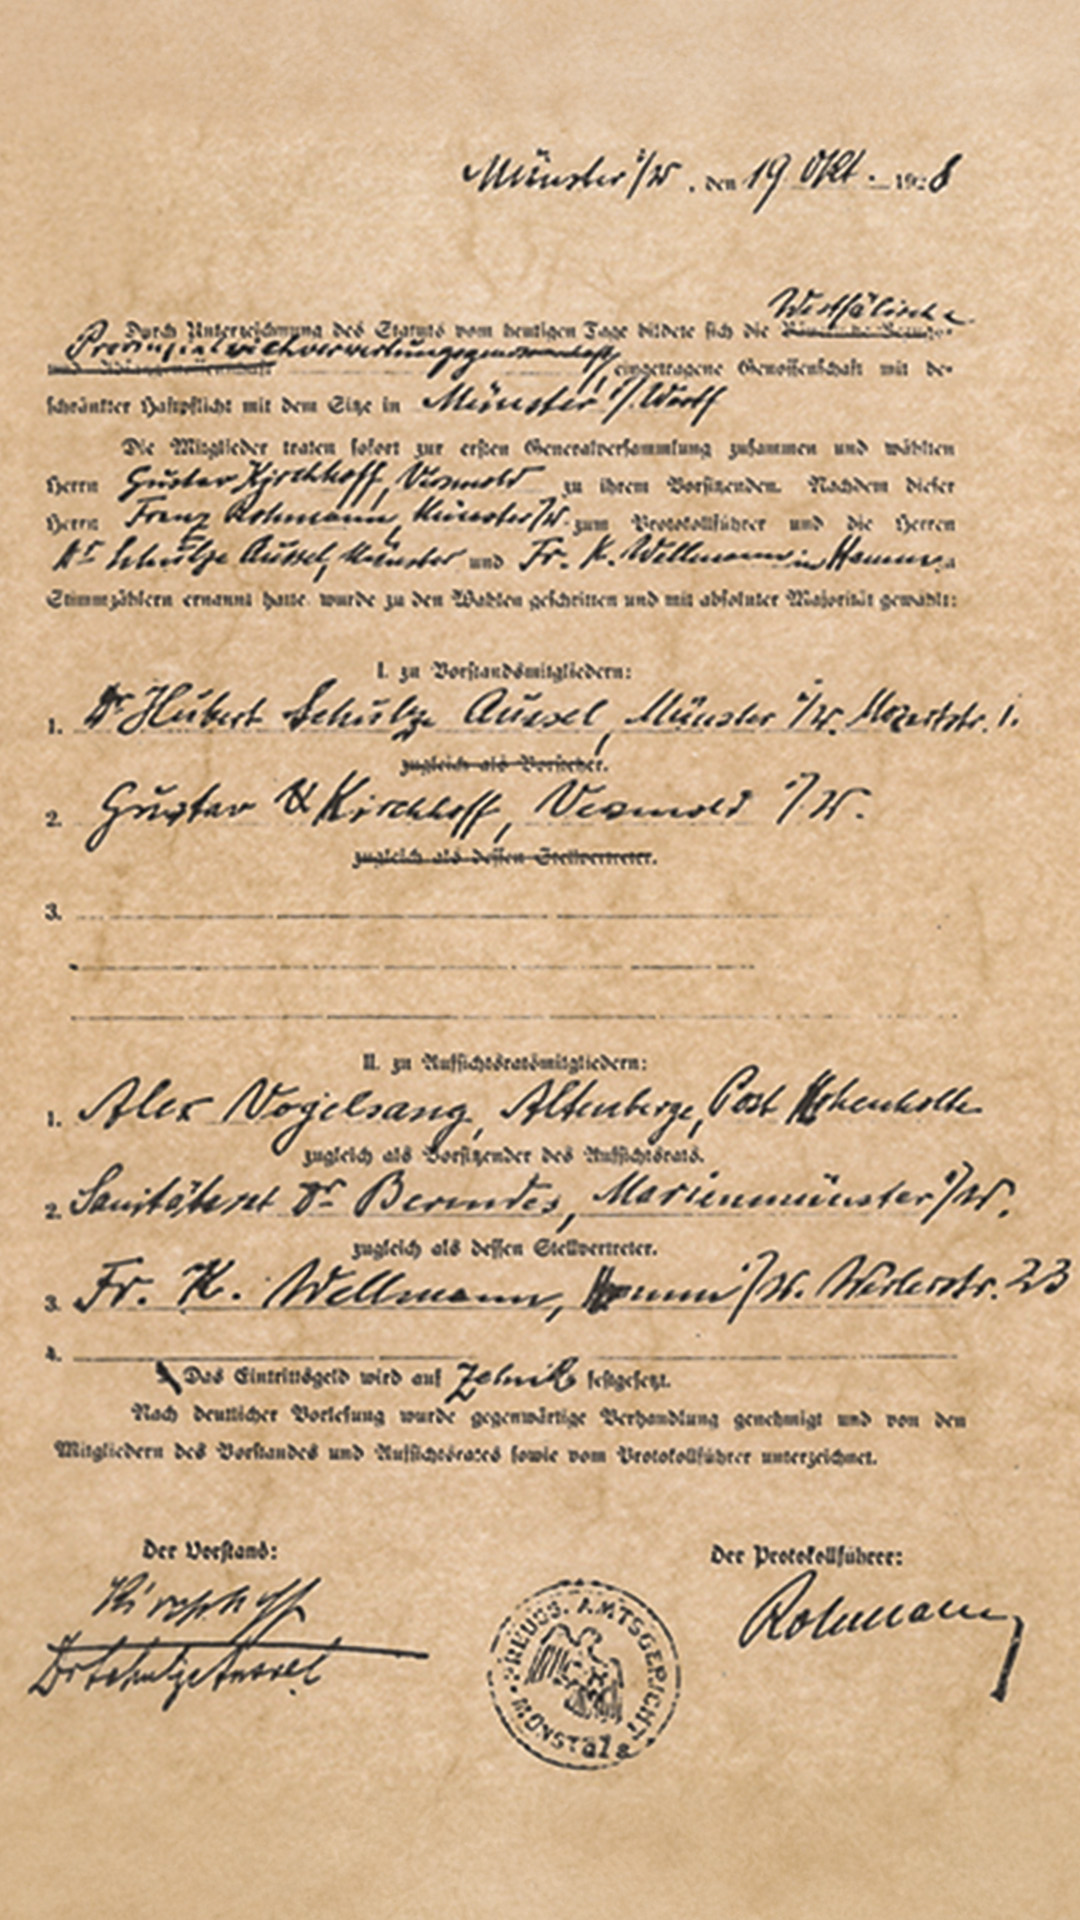 Münster i/W, den 19 Okt. 1918
Westfälische
Durch Unterzeichnung des Statuts vom heutigen Tage bildete sich die
Provinzialviehverwertungsgenossenschaft, eingetragene Genossenschaft mit be-
schränkter Haftpflicht mit dem Sitze in Münster i/Westf
Die Mitglieder traten sofort zur ersten Generalversammlung zusammen und wählten
Herrn Gustav Kirchhoff, Versmold zu ihrem Vorsitzenden. Nachdem dieser
Herrn Franz Rohmann, Münster i/W. zum Protokollführer und die Herren
Dr Schulze Aussel, Münster und Fr. K. Wellmann in Hamm
Stimmzählern ernannt hatte wurde zu den Wahlen geschritten und mit absoluter Majorität gewählt:
I. zu Vorstandsmitgliedern:
1. Dr Hubert Schulze Aussel, Münster i/W. Mozartstr. 1.
zugleich als Vorsitzer.
2. Gustav Kirchhoff, Versmold i/W.
zugleich als dessen Stellvertreter.
3.
II. zu Aufsichtsratsmitgliedern:
1. Alex Vogelsang, Altenberge, Post Hohenholte
zugleich als Vorsitzender des Aufsichtsrats.
2. Sanitätsrat Dr Berendes, Marienmünster i/W.
zugleich als dessen Stellvertreter.
3. Fr. K. Wellmann, Hamm i/W. Werlerstr. 23
4.
Das Eintrittsgeld wird auf festgesetzt.
Nach deutlicher Vorlesung wurde gegenwärtige Verhandlung genehmigt und von den
Mitgliedern des Vorstandes und Aufsichtsrates sowie vom Protokollführer unterzeichnet.
Der Vorstand: Der Protokollführer:
Kirchhoff Rohmann
Dr Schulze Aussel
PREUSS. AMTSGERICHT MÜNSTER